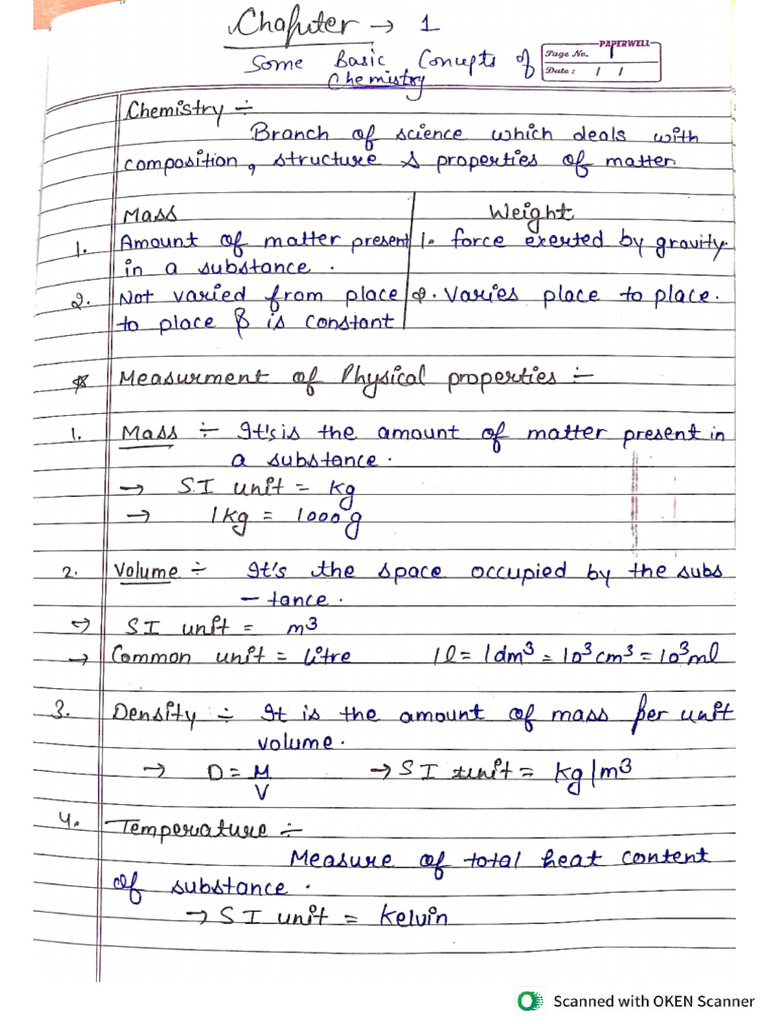 Chapter → 1
Some Basic Concepts of
Chemistry
PAPERWELL
Page No. 1
Date: / /
Chemistry ÷
Branch of science which deals with
composition, structure & properties of matter.
Mass Weight
1. Amount of matter present 1. force exerted by gravity.
in a substance.
2. Not varied from place 2. Varies place to place.
to place & is constant
* Measurment of Physical properties :-
1. Mass ÷ It's is the amount of matter present in
a substance.
→ S.I unit = kg
→ 1kg = 1000g
2. Volume ÷ It's the space occupied by the subs
-tance.
→ S I unit = m³
→ Common unit = litre 1l = 1dm³ = 10³cm³ = 10³ml
3. Density ÷ It is the amount of mass per unit
volume.
→ D = M/V → S I unit = kg/m³
4. Temperature ÷
Measure of total heat content
of substance.
→ S I unit = kelvin
Scanned with OKEN Scanner